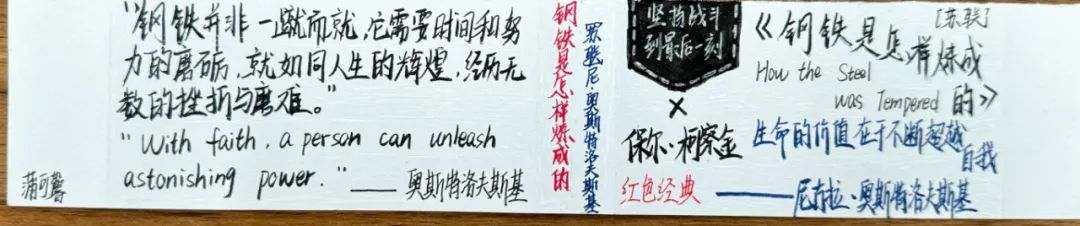 "钢铁并非一蹴而就,它需要时间和努
力的磨砺,就如同人生的辉煌,经历无
数的挫折与磨难。"
"With faith, a person can unleash
astonishing power."——奥斯特洛夫斯基
蒲可馨
钢铁是怎样炼成的
苏联 尼·奥斯特洛夫斯基
坚持战斗
到最后一刻
×
保尔·柯察金
红色经典
[苏联]
《钢铁是怎样炼成
How the Steel
was Tempered 的》
生命的价值在于不断超越
自我
——尼古拉·奥斯特洛夫斯基